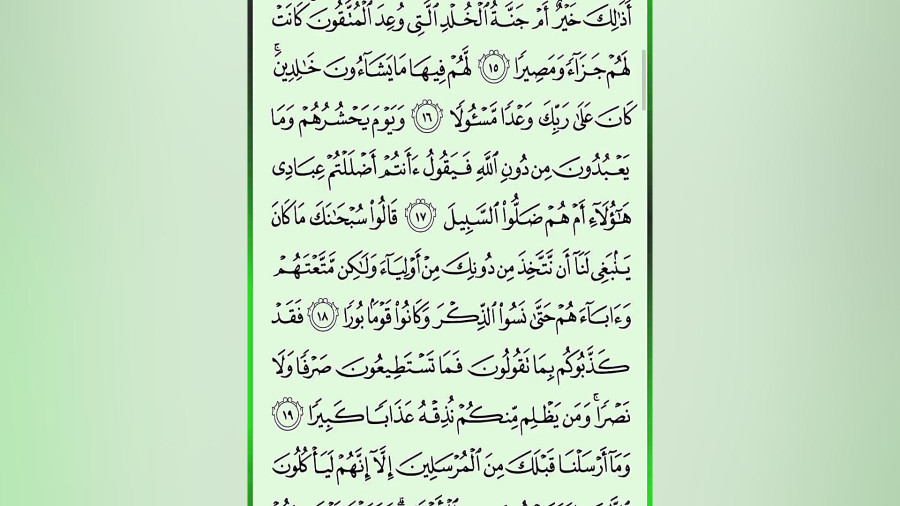 أَذَٰلِكَ خَيْرٌ أَمْ جَنَّةُ ٱلْخُلْدِ ٱلَّتِى وُعِدَ ٱلْمُتَّقُونَ كَانَتْ
لَهُمْ جَزَآءً وَمَصِيرًا ١٥ لَّهُمْ فِيهَا مَا يَشَآءُونَ خَٰلِدِينَ ۚ
كَانَ عَلَىٰ رَبِّكَ وَعْدًا مَّسْـُٔولًا ١٦ وَيَوْمَ يَحْشُرُهُمْ وَمَا
يَعْبُدُونَ مِن دُونِ ٱللَّهِ فَيَقُولُ ءَأَنتُمْ أَضْلَلْتُمْ عِبَادِى
هَٰٓؤُلَآءِ أَمْ هُمْ ضَلُّوا۟ ٱلسَّبِيلَ ١٧ قَالُوا۟ سُبْحَٰنَكَ مَا كَانَ
يَنۢبَغِى لَنَآ أَن نَّتَّخِذَ مِن دُونِكَ مِنْ أَوْلِيَآءَ وَلَٰكِن مَّتَّعْتَهُمْ
وَءَابَآءَهُمْ حَتَّىٰ نَسُوا۟ ٱلذِّكْرَ وَكَانُوا۟ قَوْمًۢا بُورًا ١٨ فَقَدْ
كَذَّبُوكُم بِمَا تَقُولُونَ فَمَا تَسْتَطِيعُونَ صَرْفًا وَلَا
نَصْرًا ۚ وَمَن يَظْلِم مِّنكُمْ نُذِقْهُ عَذَابًا كَبِيرًا ١٩
وَمَآ أَرْسَلْنَا قَبْلَكَ مِنَ ٱلْمُرْسَلِينَ إِلَّآ إِنَّهُمْ لَيَأْكُلُونَ